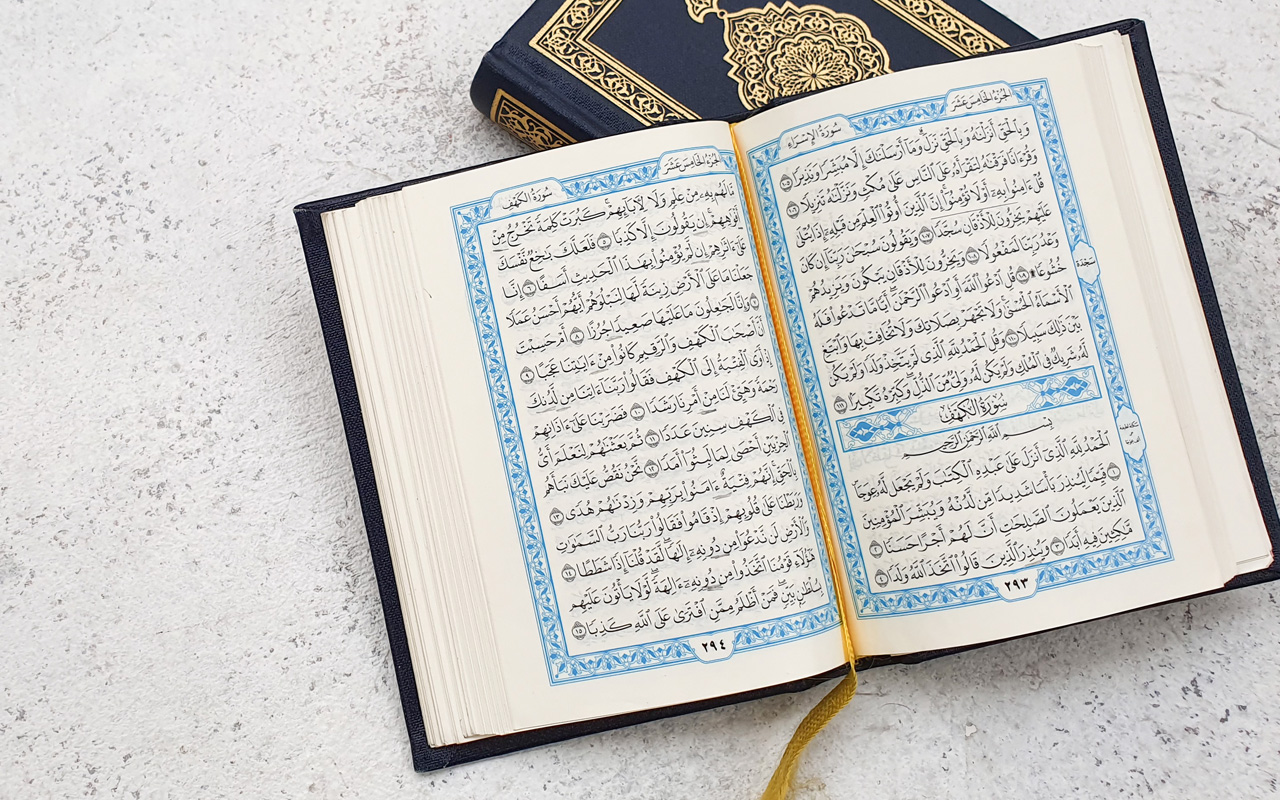 سُورَةُ الإِسْرَاءِ
الجُزْءُ الخَامِسَ عَشَرَ
وَبِٱلْحَقِّ أَنزَلْنَٰهُ وَبِٱلْحَقِّ نَزَلَ ۗ وَمَآ أَرْسَلْنَٰكَ إِلَّا مُبَشِّرًا وَنَذِيرًا ١٠٥
وَقُرْءَانًا فَرَقْنَٰهُ لِتَقْرَأَهُۥ عَلَى ٱلنَّاسِ عَلَىٰ مُكْثٍ وَنَزَّلْنَٰهُ تَنزِيلًا ١٠٦
قُلْ ءَامِنُوا۟ بِهِۦٓ أَوْ لَا تُؤْمِنُوٓا۟ ۚ إِنَّ ٱلَّذِينَ أُوتُوا۟ ٱلْعِلْمَ مِن قَبْلِهِۦٓ إِذَا يُتْلَىٰ
عَلَيْهِمْ يَخِرُّونَ لِلْأَذْقَانِ سُجَّدًا ١٠٧ وَيَقُولُونَ سُبْحَٰنَ رَبِّنَآ إِن كَانَ
وَعْدُ رَبِّنَا لَمَفْعُولًا ١٠٨ وَيَخِرُّونَ لِلْأَذْقَانِ يَبْكُونَ وَيَزِيدُهُمْ
خُشُوعًا ۩ ١٠٩ قُلِ ٱدْعُوا۟ ٱللَّهَ أَوِ ٱدْعُوا۟ ٱلرَّحْمَٰنَ ۖ أَيًّا مَّا تَدْعُوا۟ فَلَهُ
ٱلْأَسْمَآءُ ٱلْحُسْنَىٰ ۚ وَلَا تَجْهَرْ بِصَلَاتِكَ وَلَا تُخَافِتْ بِهَا وَٱبْتَغِ
بَيْنَ ذَٰلِكَ سَبِيلًا ١١٠ وَقُلِ ٱلْحَمْدُ لِلَّهِ ٱلَّذِى لَمْ يَتَّخِذْ وَلَدًا وَلَمْ يَكُن
لَّهُۥ شَرِيكٌ فِى ٱلْمُلْكِ وَلَمْ يَكُن لَّهُۥ وَلِىٌّ مِّنَ ٱلذُّلِّ ۖ وَكَبِّرْهُ تَكْبِيرًۢا ١١١
سَجْدَة
سُورَةُ الكَهْفِ
بِسْمِ ٱللَّهِ ٱلرَّحْمَٰنِ ٱلرَّحِيمِ
ٱلْحَمْدُ لِلَّهِ ٱلَّذِىٓ أَنزَلَ عَلَىٰ عَبْدِهِ ٱلْكِتَٰبَ وَلَمْ يَجْعَل لَّهُۥ عِوَجَا
١ قَيِّمًا لِّيُنذِرَ بَأْسًا شَدِيدًا مِّن لَّدُنْهُ وَيُبَشِّرَ ٱلْمُؤْمِنِينَ
ٱلَّذِينَ يَعْمَلُونَ ٱلصَّٰلِحَٰتِ أَنَّ لَهُمْ أَجْرًا حَسَنًا ٢
مَّٰكِثِينَ فِيهِ أَبَدًا ٣ وَيُنذِرَ ٱلَّذِينَ قَالُوا۟ ٱتَّخَذَ ٱللَّهُ وَلَدًا ٤
٢٩٣
سُورَةُ الكَهْفِ
الجُزْءُ الخَامِسَ عَشَرَ
مَّا لَهُم بِهِۦ مِنْ عِلْمٍ وَلَا لِءَابَآئِهِمْ ۚ كَبُرَتْ كَلِمَةً تَخْرُجُ مِنْ
أَفْوَٰهِهِمْ ۚ إِن يَقُولُونَ إِلَّا كَذِبًا ٥ فَلَعَلَّكَ بَٰخِعٌ نَّفْسَكَ
عَلَىٰٓ ءَاثَٰرِهِمْ إِن لَّمْ يُؤْمِنُوا۟ بِهَٰذَا ٱلْحَدِيثِ أَسَفًا ٦ إِنَّا
جَعَلْنَا مَا عَلَى ٱلْأَرْضِ زِينَةً لَّهَا لِنَبْلُوَهُمْ أَيُّهُمْ أَحْسَنُ عَمَلًا
٧ وَإِنَّا لَجَٰعِلُونَ مَا عَلَيْهَا صَعِيدًا جُرُزًا ٨ أَمْ حَسِبْتَ
أَنَّ أَصْحَٰبَ ٱلْكَهْفِ وَٱلرَّقِيمِ كَانُوا۟ مِنْ ءَايَٰتِنَا عَجَبًا ٩
إِذْ أَوَى ٱلْفِتْيَةُ إِلَى ٱلْكَهْفِ فَقَالُوا۟ رَبَّنَآ ءَاتِنَا مِن لَّدُنكَ
رَحْمَةً وَهَيِّئْ لَنَا مِنْ أَمْرِنَا رَشَدًا ١٠ فَضَرَبْنَا عَلَىٰٓ ءَاذَانِهِمْ
فِى ٱلْكَهْفِ سِنِينَ عَدَدًا ١١ ثُمَّ بَعَثْنَٰهُمْ لِنَعْلَمَ أَىُّ
ٱلْحِزْبَيْنِ أَحْصَىٰ لِمَا لَبِثُوٓا۟ أَمَدًا ١٢ نَّحْنُ نَقُصُّ عَلَيْكَ نَبَأَهُم
بِٱلْحَقِّ ۚ إِنَّهُمْ فِتْيَةٌ ءَامَنُوا۟ بِرَبِّهِمْ وَزِدْنَٰهُمْ هُدًى ١٣
وَرَبَطْنَا عَلَىٰ قُلُوبِهِمْ إِذْ قَامُوا۟ فَقَالُوا۟ رَبُّنَا رَبُّ ٱلسَّمَٰوَٰتِ
وَٱلْأَرْضِ لَن نَّدْعُوَا۟ مِن دُونِهِۦٓ إِلَٰهًا ۖ لَّقَدْ قُلْنَآ إِذًا شَطَطًا ١٤
هَٰٓؤُلَآءِ قَوْمُنَا ٱتَّخَذُوا۟ مِن دُونِهِۦٓ ءَالِهَةً ۖ لَّوْلَا يَأْتُونَ عَلَيْهِم
بِسُلْطَٰنٍۭ بَيِّنٍ ۖ فَمَنْ أَظْلَمُ مِمَّنِ ٱفْتَرَىٰ عَلَى ٱللَّهِ كَذِبًا ١٥
٢٩٤